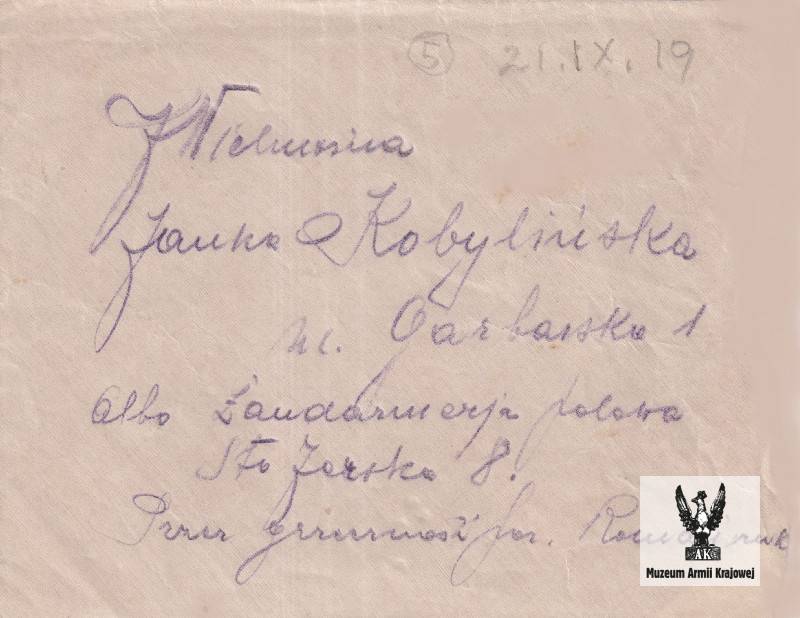 5 21.IX.19
JWielmożna
Janka Kobylińska
ul. Garbarska 1
Albo Żandarmerja polowa
Sto Jerska 8.
Przez grzeczność por.
AK
Muzeum Armii Krajowej